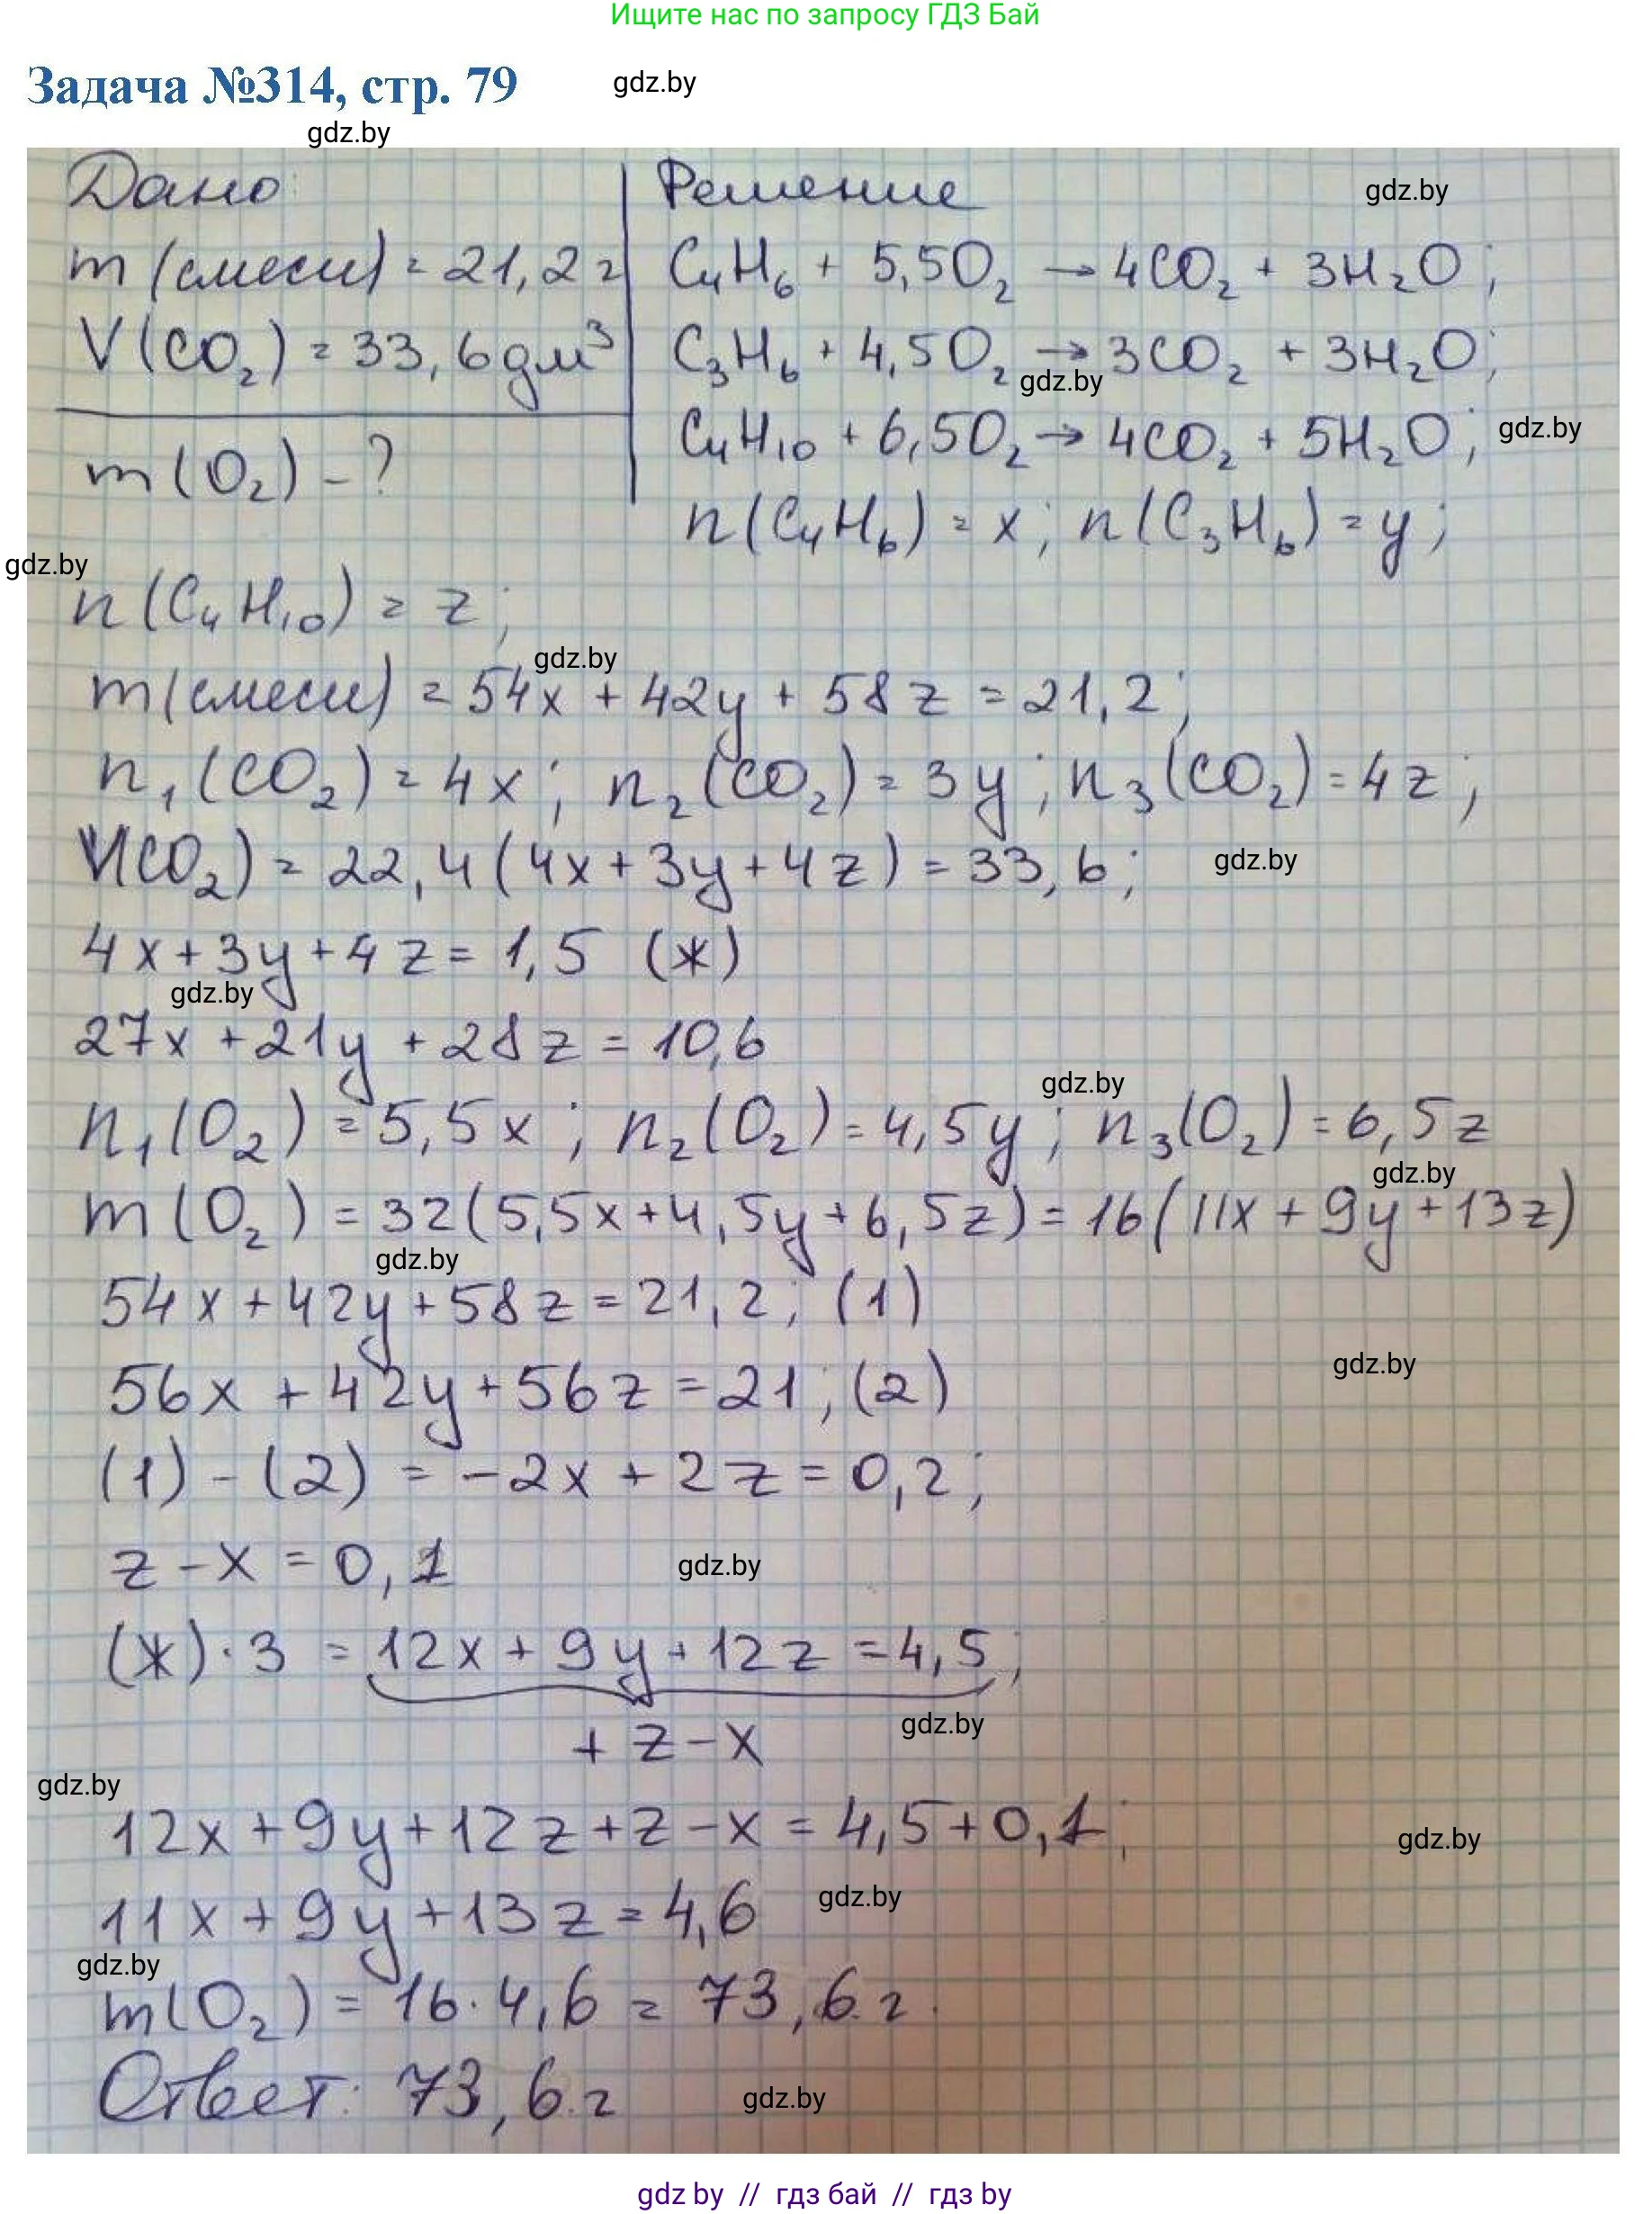 Ищите нас по запросу ГДЗ Бай
Задача №314, стр. 79
gdz.by
gdz.by
Дано:
m (смеси) = 21,2 г
V(CO₂) = 33,6 дм³
m(O₂) - ?
Решение
gdz.by
C₄H₆ + 5,5O₂ → 4CO₂ + 3H₂O;
C₃H₆ + 4,5O₂ → 3CO₂ + 3H₂O;
gdz.by
C₄H₁₀ + 6,5O₂ → 4CO₂ + 5H₂O;
gdz.by
n(C₄H₆) = x; n(C₃H₆) = y;
gdz.by
n(C₄H₁₀) = z;
gdz.by
m(смеси) = 54x + 42y + 58z = 21,2;
n₁(CO₂) = 4x; n₂(CO₂) = 3y; n₃(CO₂) = 4z;
V(CO₂) = 22,4(4x + 3y + 4z) = 33,6;
gdz.by
4x + 3y + 4z = 1,5 (ж)
gdz.by
27x + 21y + 28z = 10,6
gdz.by
n₁(O₂) = 5,5x; n₂(O₂) = 4,5y; n₃(O₂) = 6,5z
gdz.by
m(O₂) = 32(5,5x + 4,5y + 6,5z) = 16(11x + 9y + 13z)
gdz.by
54x + 42y + 58z = 21,2; (1)
gdz.by
56x + 42y + 56z = 21; (2)
(1) - (2) = -2x + 2z = 0,2;
z - x = 0,1
gdz.by
(ж)·3 = 12x + 9y + 12z = 4,5;
gdz.by
+ z - x
gdz.by
12x + 9y + 12z + z - x = 4,5 + 0,1;
gdz.by
gdz.by
11x + 9y + 13z = 4,6
gdz.by
m(O₂) = 16·4,6 = 73,6 г.
Ответ: 73,6 г
gdz.by
gdz by // гдз бай // гдз by